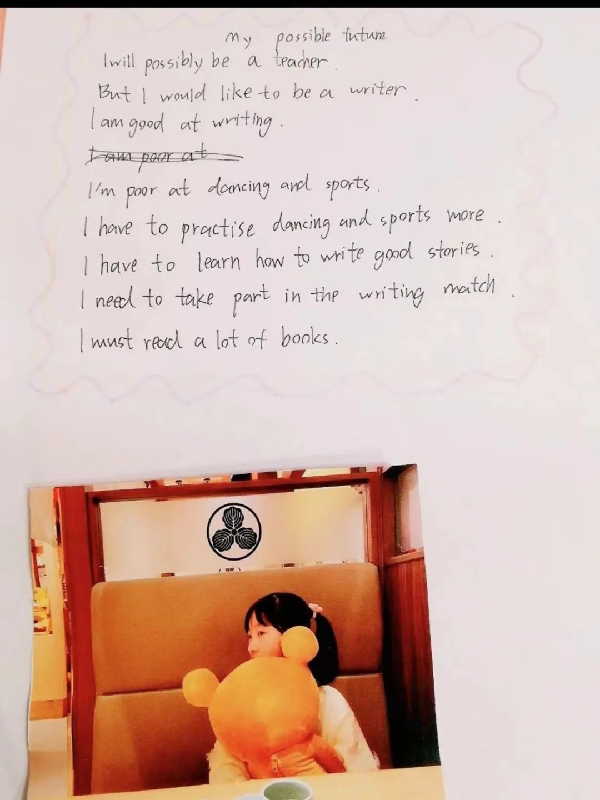 My possible future
I will possibly be a teacher.
But I would like to be a writer.
I am good at writing.
I am poor at
I'm poor at dancing and sports.
I have to practise dancing and sports more.
I have to learn how to write good stories.
I need to take part in the writing match.
I must read a lot of books.